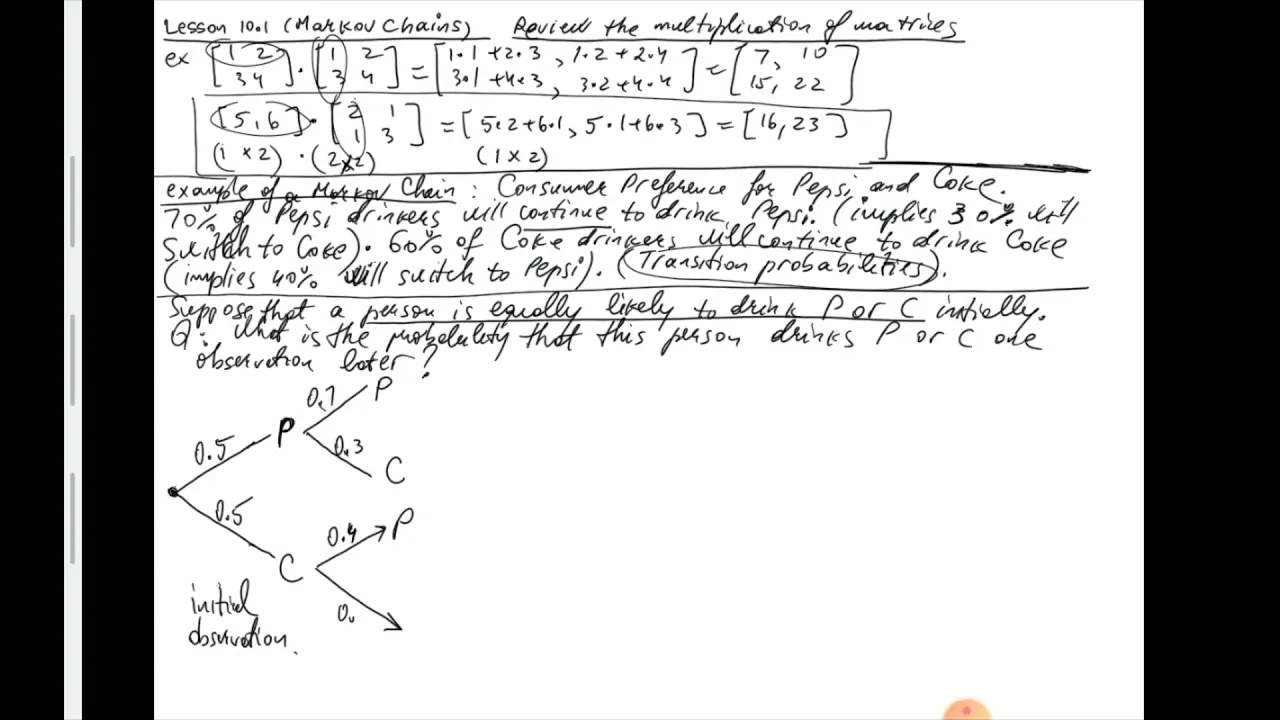 Lesson 10.1 (Markov Chains) Review the multiplication of matrices
ex [1 2 · [1 2 = [1·1+2·3 , 1·2+2·4 = [7, 10
3 4] 3 4] 3·1+4·3 , 3·2+4·4] 15, 22]
[5,6] · [2 1 = [5·2+6·1, 5·1+6·3] = [16, 23]
1 3]
(1 × 2) · (2×2) (1 × 2)
example of a Markov Chain : Consumer Preference for Pepsi and Coke.
70% of Pepsi drinkers will continue to drink Pepsi. (implies 30% will
switch to Coke). 60% of Coke drinkers will continue to drink Coke
(implies 40% will switch to Pepsi). (Transition probabilities).
Suppose that a person is equally likely to drink P or C initially.
Q: What is the probability that this person drinks P or C one
observation later?
0.7 P
0.5 P 0.3
C
0.5 0.4 P
C
initial 0.
observation.